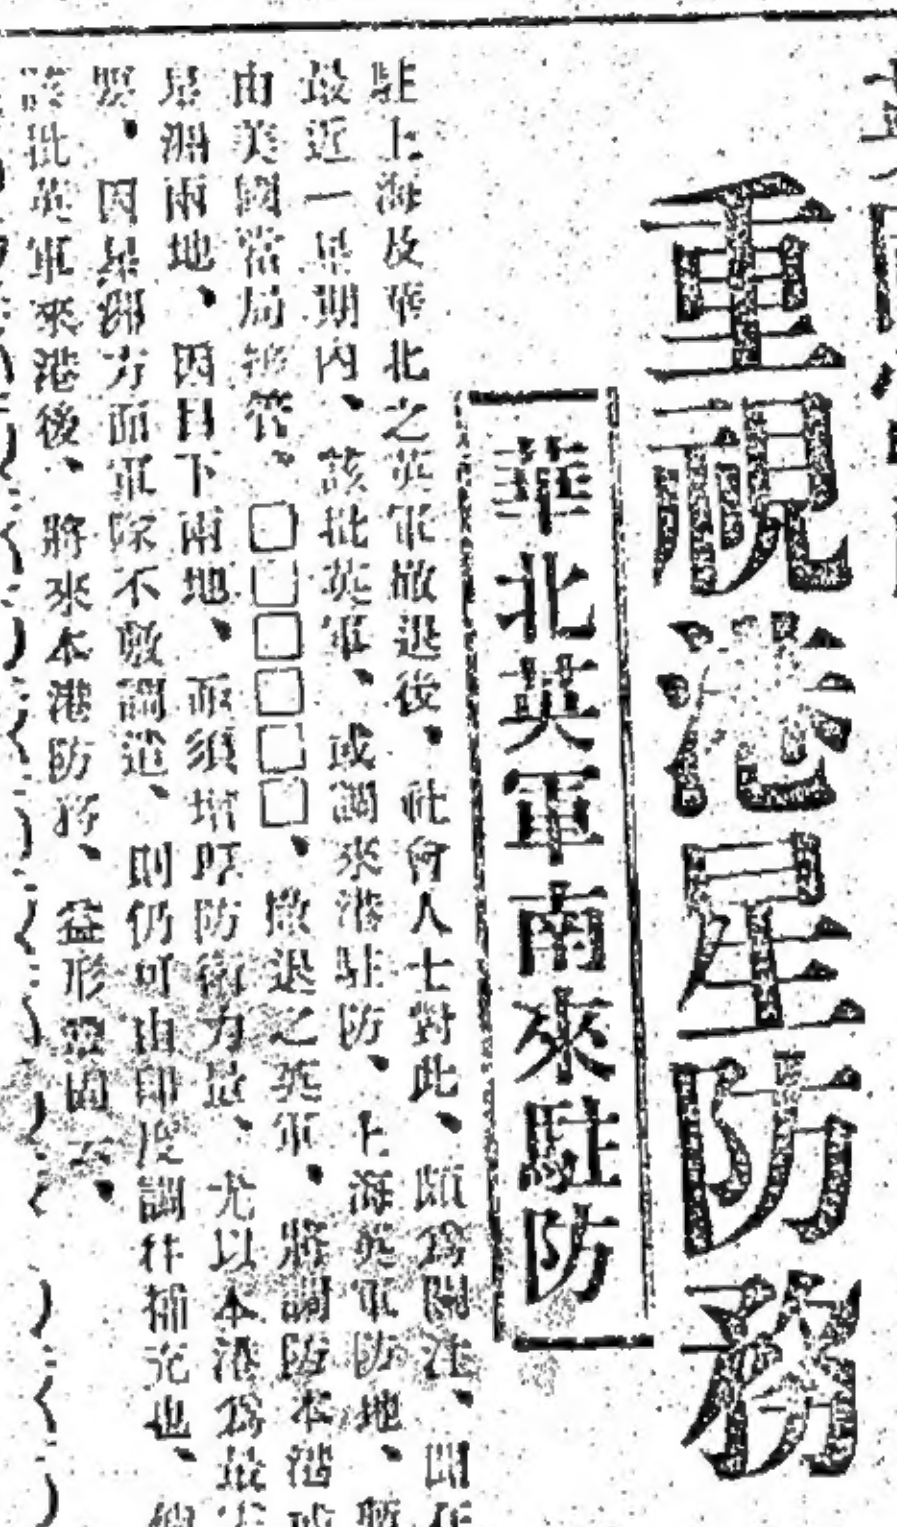 重視港星防務
華北英軍南來駐防
駐上海及華北之英軍撤退後、社會人士對此、頗為關注、聞在
最近一星期內、該批英軍、或調來港駐防、上海英軍防地、暫
由美國當局接管、□□□□□□、撤退之英軍、將調防本港或
星洲兩地、因目下兩地、亟須增厚防衛力量、尤以本港為最
要、因星洲方面軍隊不敷調遣、則仍可由印度調往補充也、
該批英軍來港後、將來本港防務、益形鞏固云、